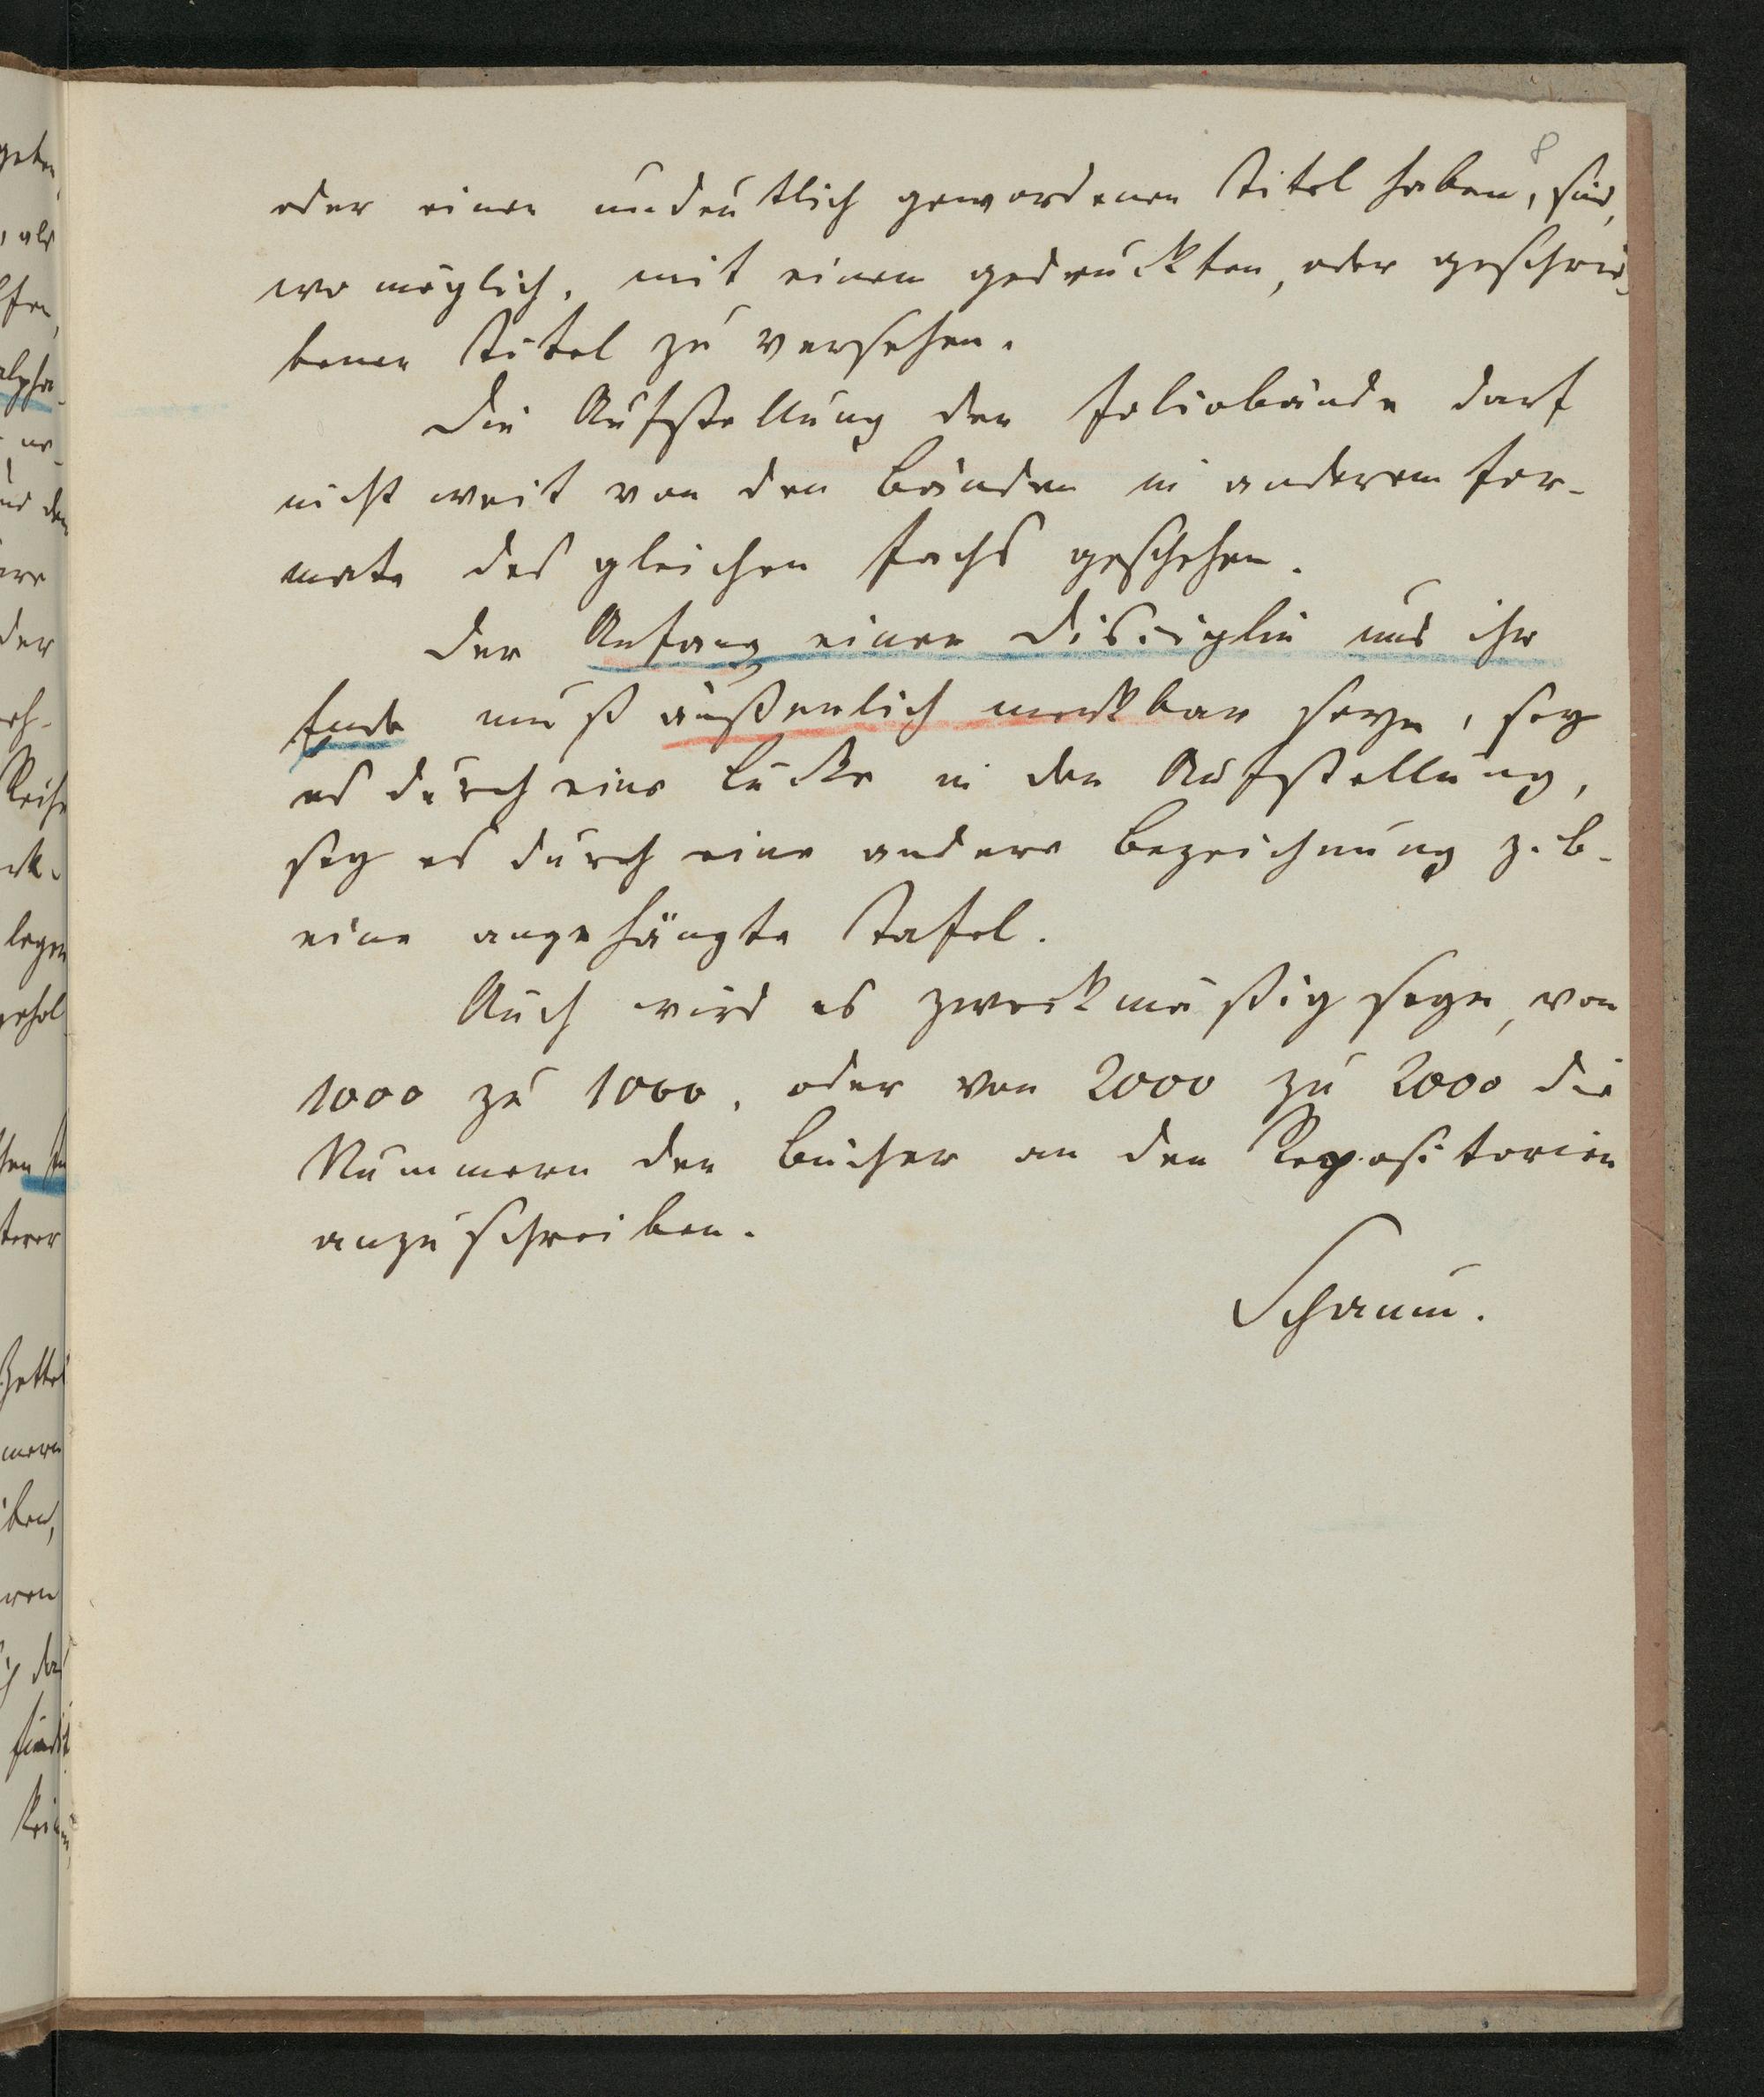 8
oder einen undeutlich gewordenen Titel haben, sind,
wo möglich, mit einem gedruckten, oder geschrie-
benen Titel zu versehen.
Die Aufstellung der Foliobände darf
nicht weit von den Bänden in anderem For-
mate des gleichen Fachs geschehen.
Der Anfang einer Disciplin und ihr
Ende muß äußerlich merkbar seyn, sey
es durch eine Lücke in der Aufstellung,
sey es durch eine andere Bezeichnung z. B.
eine angehängte Tafel.
Auch wird es zweckmäßig seyn, von
1000 zu 1000, oder von 2000 zu 2000 die
Nummern der Bücher an den Repositorien
anzuschreiben.
Schaum.